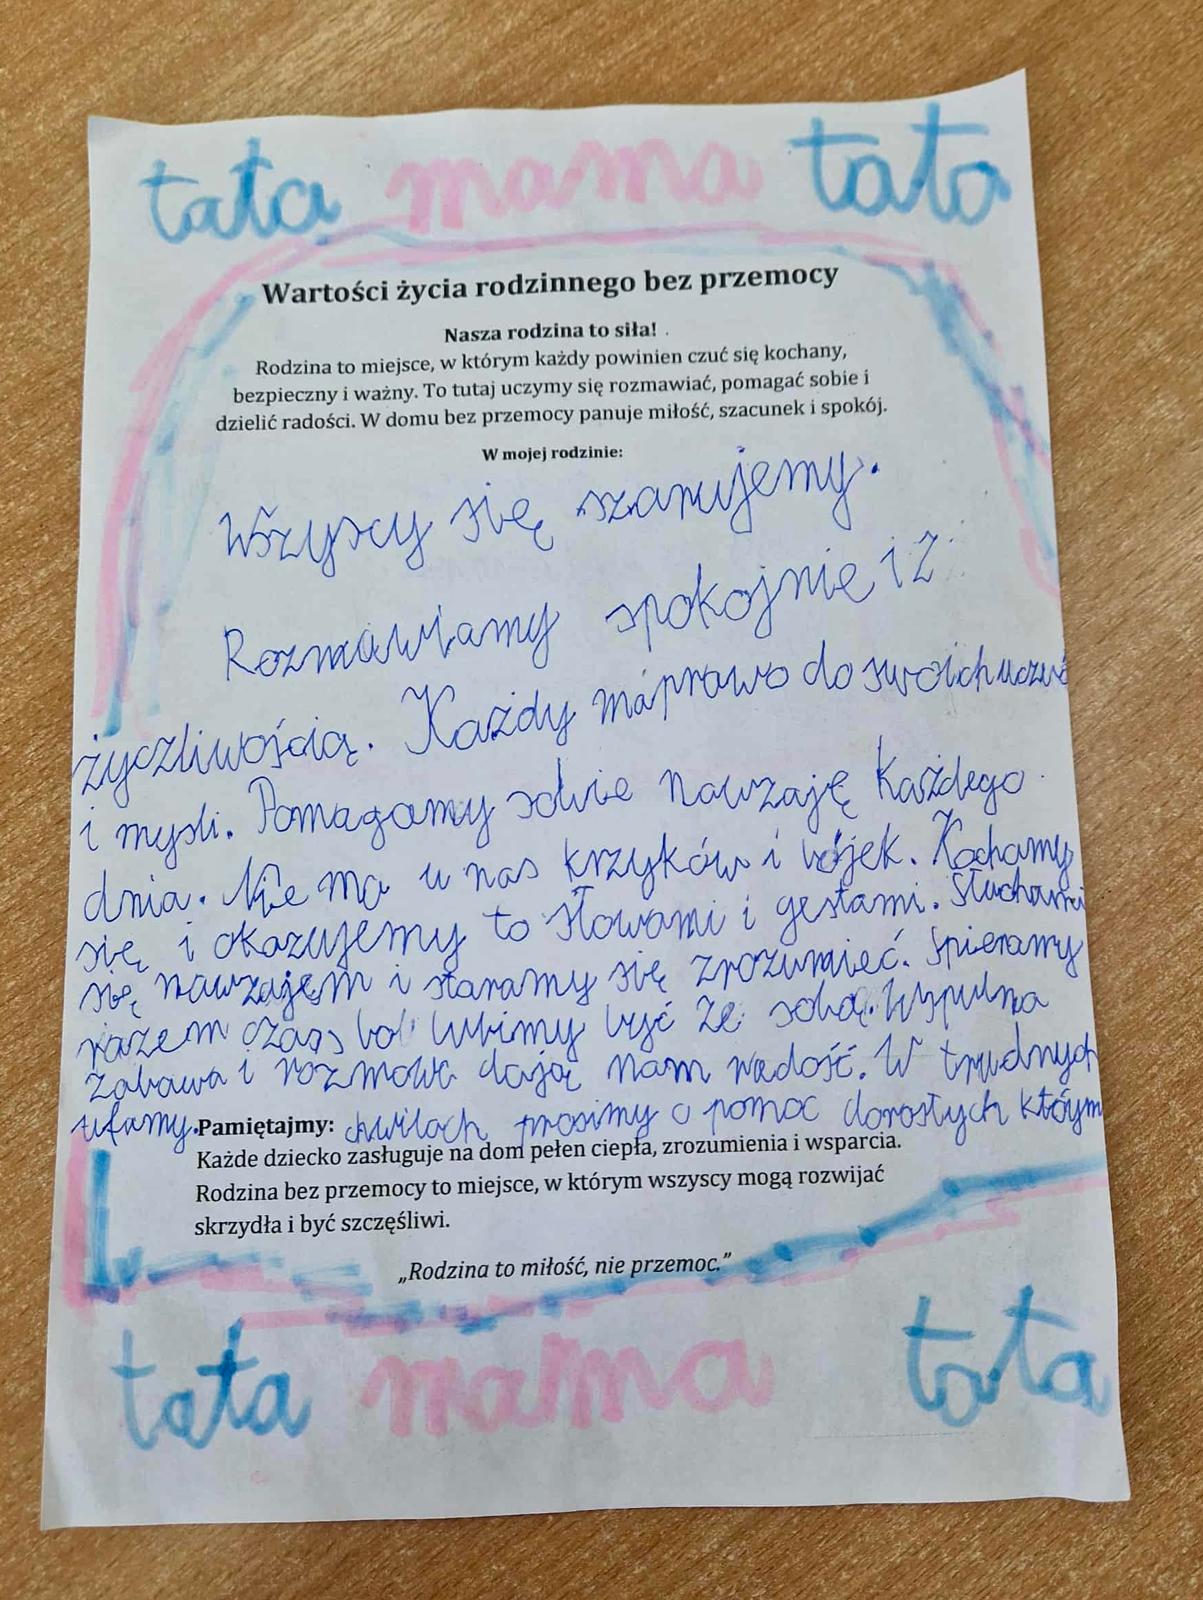 tata mama tata
Wartości życia rodzinnego bez przemocy
Nasza rodzina to siła!
Rodzina to miejsce, w którym każdy powinien czuć się kochany,
bezpieczny i ważny. To tutaj uczymy się rozmawiać, pomagać sobie i
dzielić radości. W domu bez przemocy panuje miłość, szacunek i spokój.
W mojej rodzinie:
Wszyscy się szanujemy.
Rozmawiamy spokojnie i z
życzliwością. Każdy ma prawo do swoich uczuć
i myśli. Pomagamy sobie nawzaję każdego
dnia. Nie ma u nas krzyków i bójek. Kochamy
się i okazujemy to słowami i gestami. Słuchami
się nawzajem i staramy się zrozumieć. Spieramy
razem czas bo lubimy być ze sobą. Wspulna
zabawa i rozmowa dają nam radość. W trudnych
ufamy. Pamiętajmy: chwilach prosimy o pomoc dorosłych którym
Każde dziecko zasługuje na dom pełen ciepła, zrozumienia i wsparcia.
Rodzina bez przemocy to miejsce, w którym wszyscy mogą rozwijać
skrzydła i być szczęśliwi.
„Rodzina to miłość, nie przemoc.”
tata mama tata